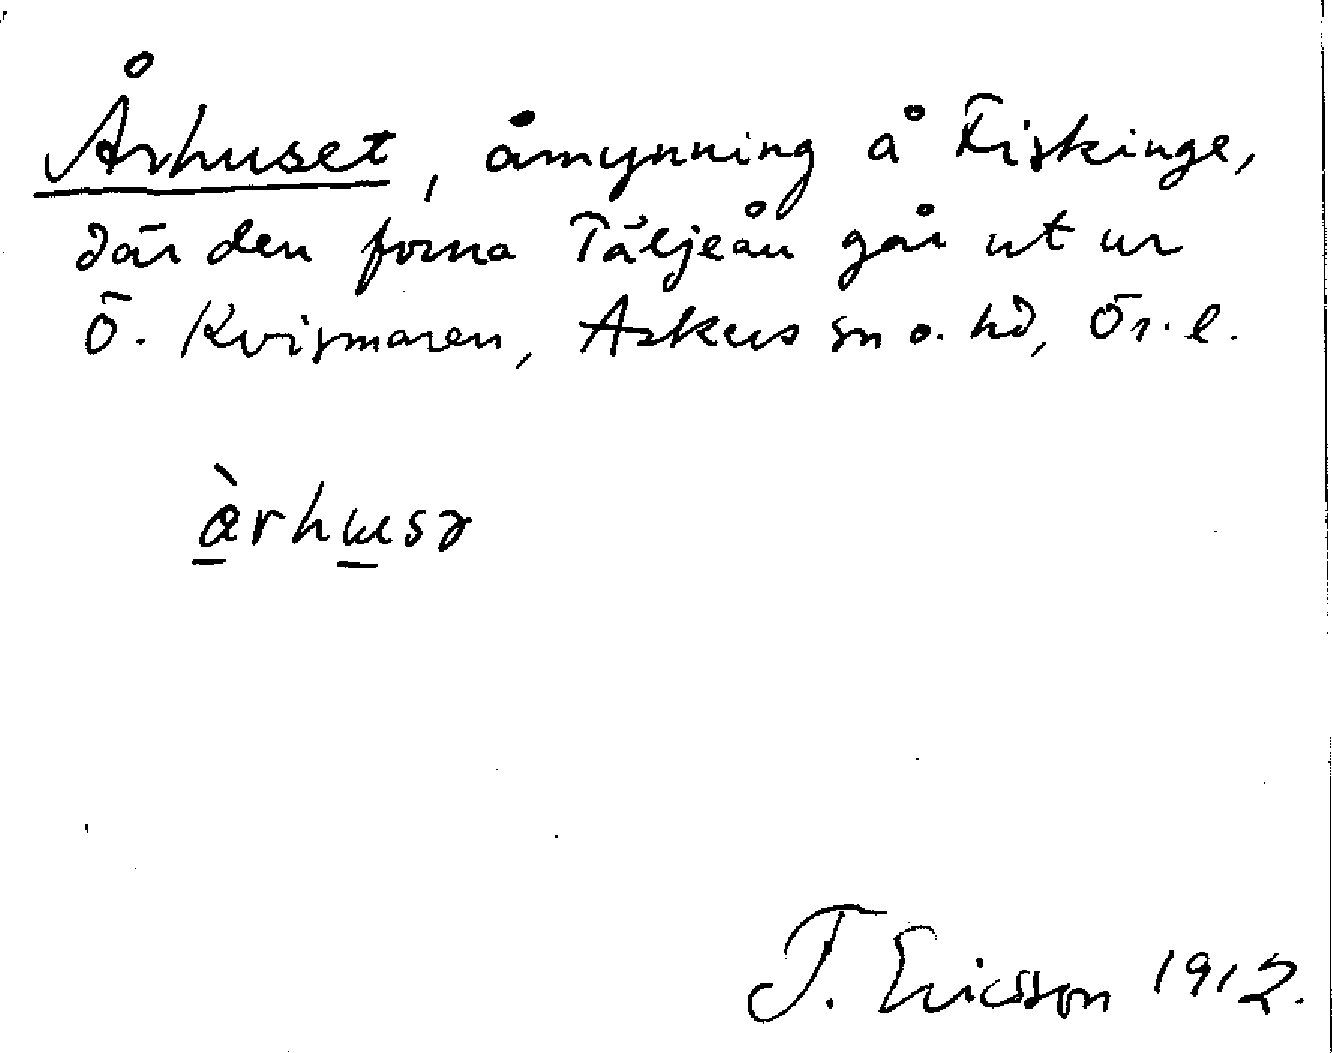 Århuset, åmynning å Fiskinge,
där den forna Täljeån går ut ur
Ö. Kvismaren, Askers sn o. hd, Ör. l.
àrhusə
T. Ericsson 1912.